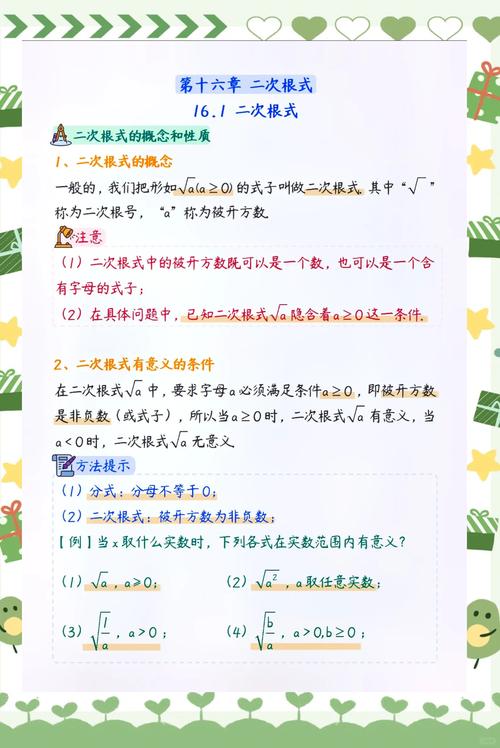 第十六章 二次根式
16.1 二次根式
二次根式的概念和性质
1、二次根式的概念
一般的，我们把形如√a(a≥0)的式子叫做二次根式. 其中“√ ”
称为二次根号，“a”称为被开方数.
注意
（1）二次根式中的被开方数既可以是一个数，也可以是一个含
有字母的式子；
（2）在具体问题中，已知二次根式√a隐含着a≥0这一条件.
2、二次根式有意义的条件
在二次根式√a中，要求字母a必须满足条件a≥0，即被开方数
是非负数（或式子），所以当a≥0时，二次根式√a有意义，当
a<0时，二次根式√a无意义.
方法提示
（1）分式：分母不等于0；
（2）二次根式：被开方数为非负数；
【例】当x取什么实数时，下列各式在实数范围内有意义？
（1）√a，a≥0； （2）√a²，a取任意实数；
（3）√(1/a)，a>0； （4）√(b/a)，a>0,b≥0；